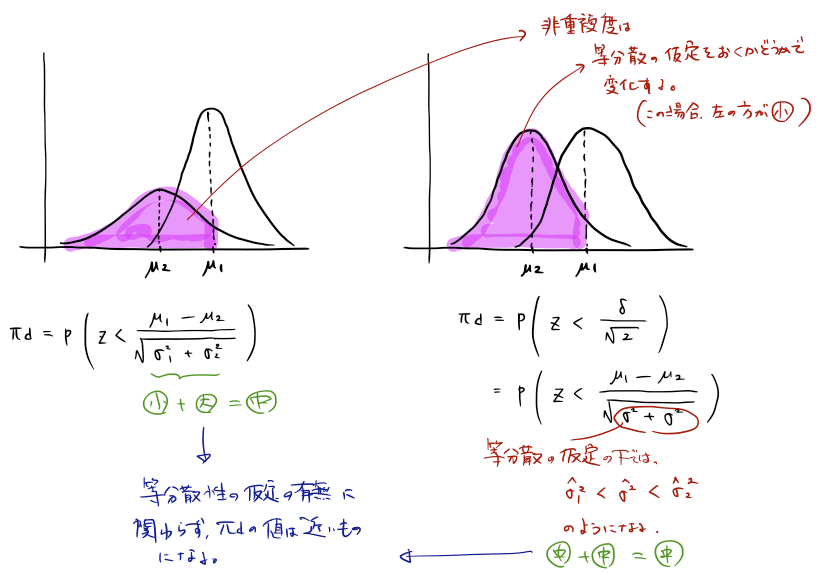 非重複度は
等分散の仮定をおくかどうかで
変化する。
(この場合、左の方が㊙小)
μ2 μ1
μ2 μ1
πd = P ( z < μ1 − μ2 / √σ1² + σ2² )
小 + 大 = 中
等分散性の仮定の有無に
関わらず, πdの値は近いもの
になる。
πd = P ( z < δ / √2 )
= P ( z < μ1 − μ2 / √σ² + σ² )
等分散の仮定の下では、
σ̂1² < σ̂² < σ̂2²
のようになる.
中 + 中 = 中